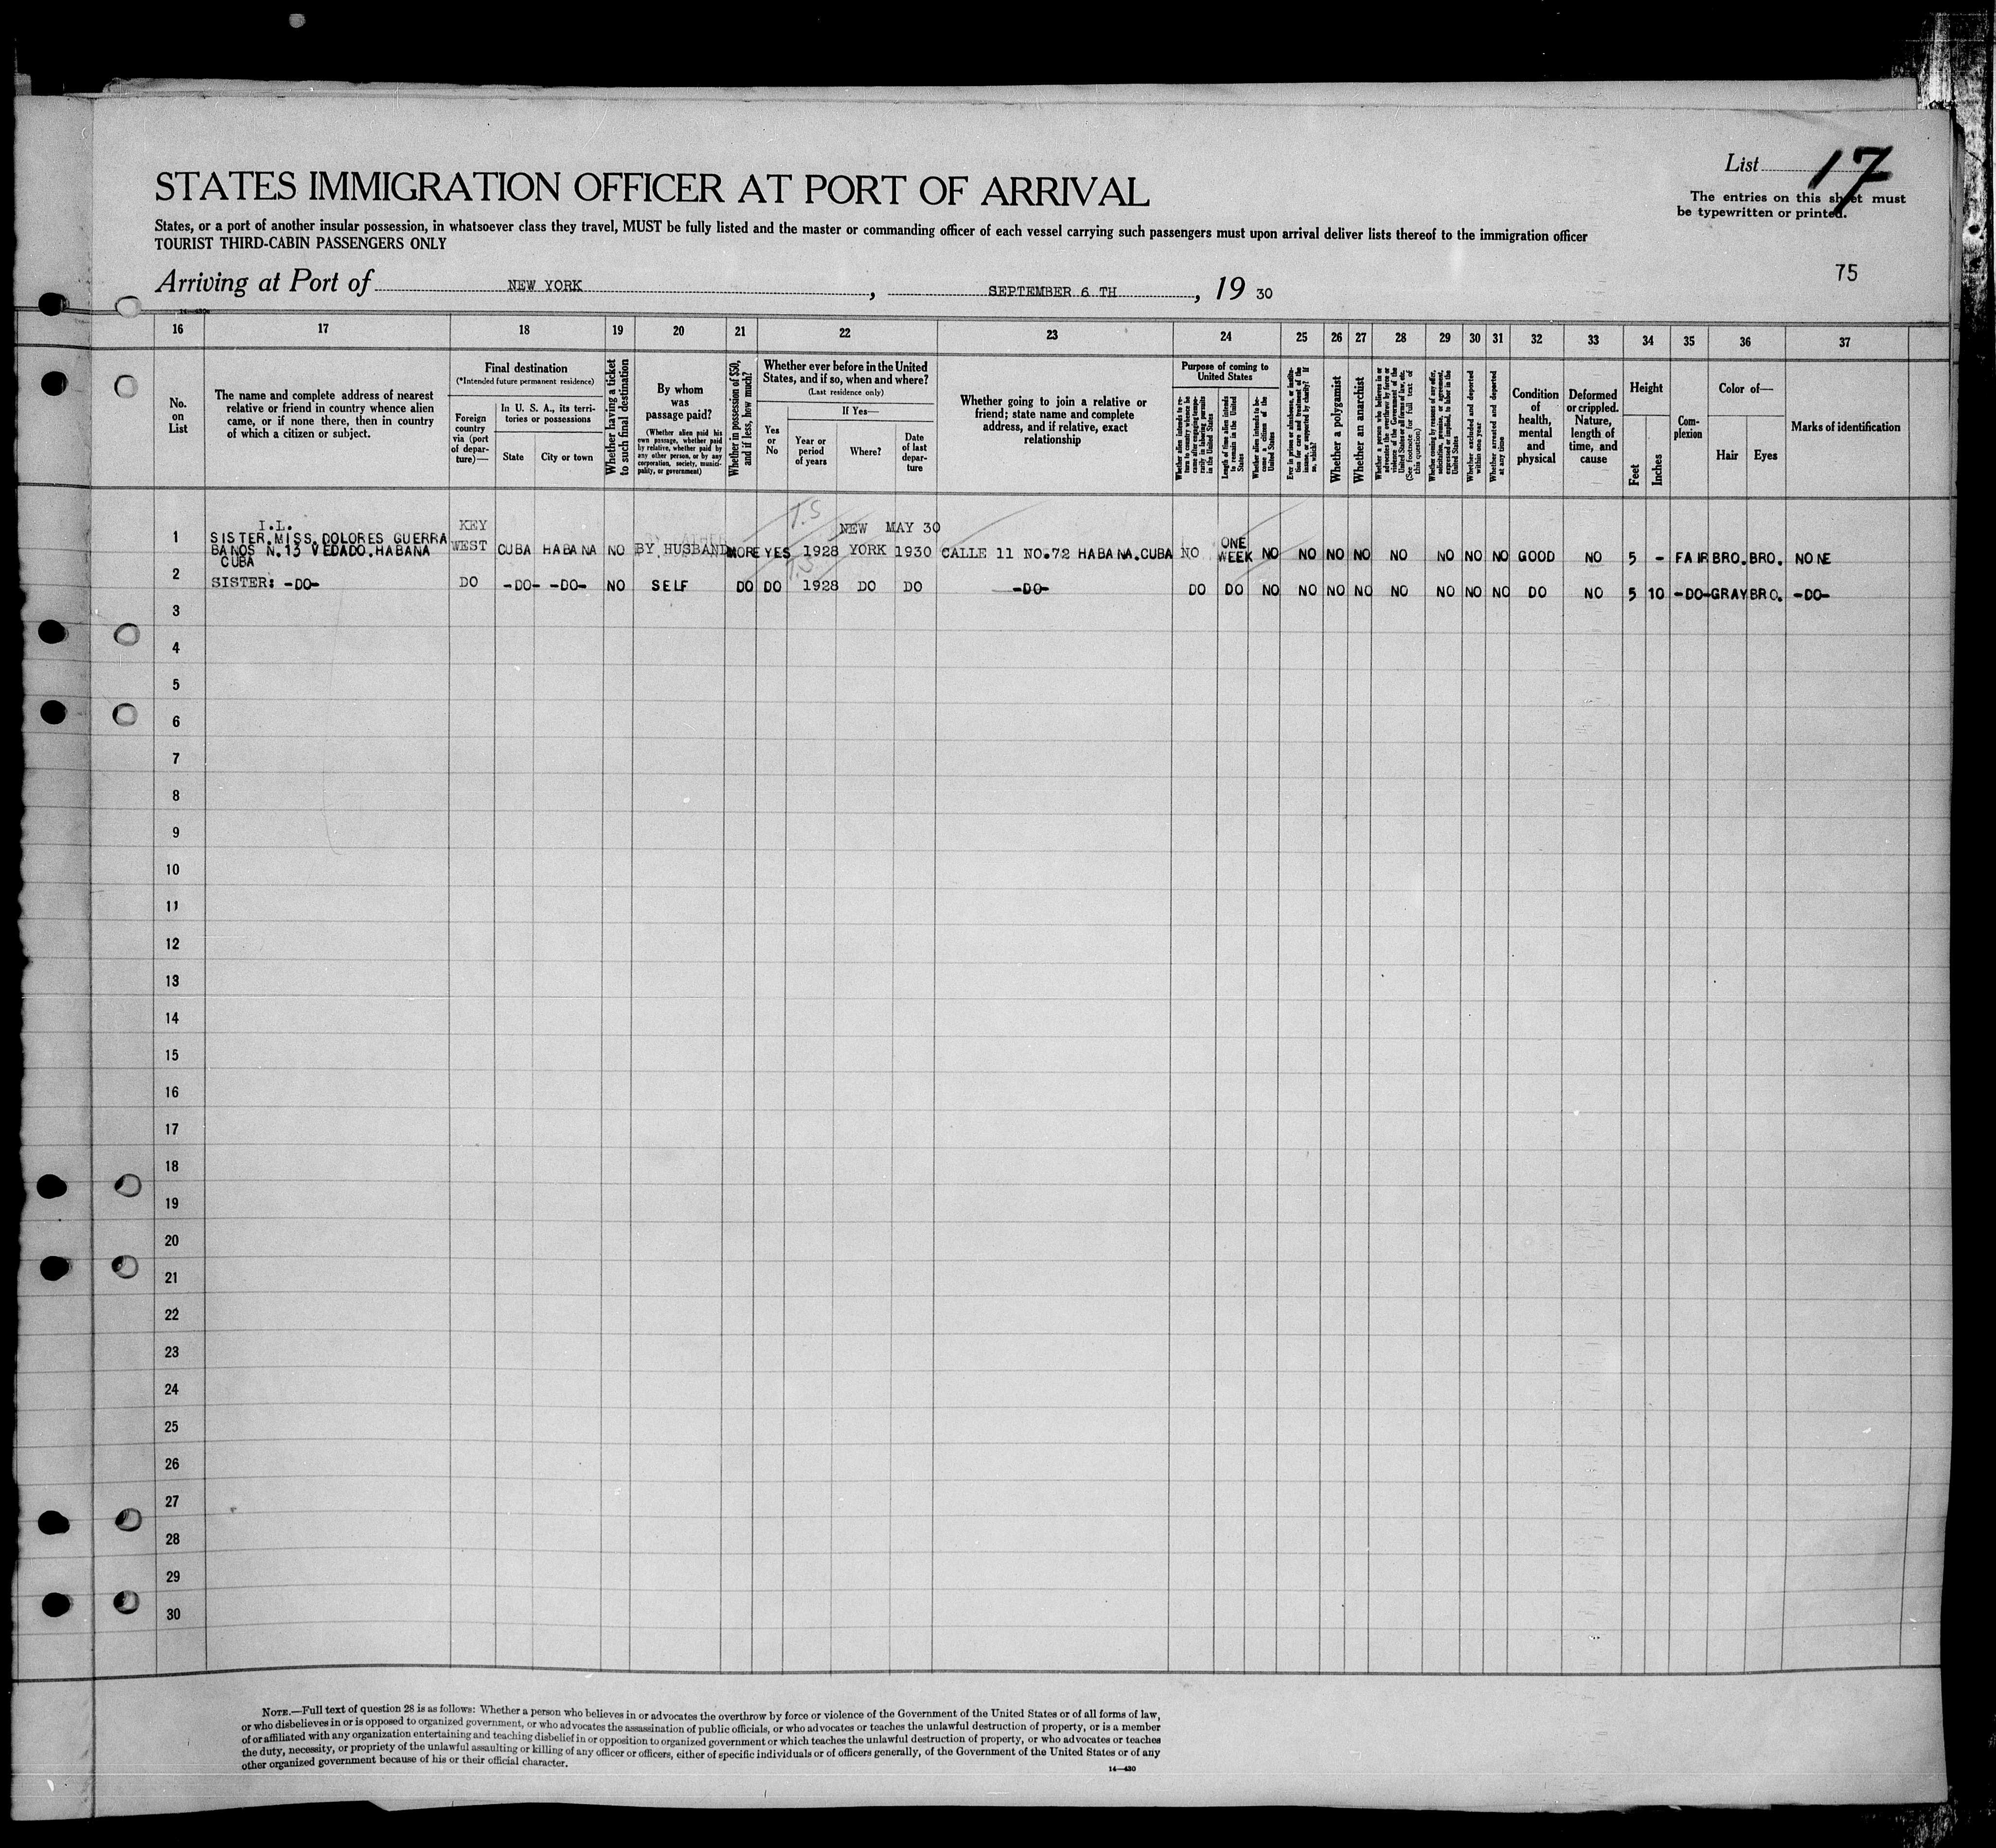 List 17
STATES IMMIGRATION OFFICER AT PORT OF ARRIVAL
The entries on this sheet must
be typewritten or printed.
States, or a port of another insular possession, in whatsoever class they travel, MUST be fully listed and the master or commanding officer of each vessel carrying such passengers must upon arrival deliver lists thereof to the immigration officer
TOURIST THIRD-CABIN PASSENGERS ONLY
75
Arriving at Port of NEW YORK, SEPTEMBER 6 TH, 19 30
14-430
16 17 18 19 20 21 22 23 24 25 26 27 28 29 30 31 32 33 34 35 36 37
No.
on
List
The name and complete address of nearest
relative or friend in country whence alien
came, or if none there, then in country
of which a citizen or subject.
Final destination
(*Intended future permanent residence)
Foreign
country
via (port
of depar-
ture)—
In U. S. A., its terri-
tories or possessions
State
City or town
Whether having a ticket
to such final destination
By whom
was
passage paid?
(Whether alien paid his
own passage, whether paid
by relative, whether paid by
any other person, or by any
corporation, society, munici-
pality, or government)
Whether in possession of $50,
and if less, how much?
Whether ever before in the United
States, and if so, when and where?
(Last residence only)
Yes
or
No
If Yes—
Year or
period
of years
Where?
Date
of last
depar-
ture
Whether going to join a relative or
friend; state name and complete
address, and if relative, exact
relationship
Purpose of coming to
United States
Whether alien intends to re-
turn to country whence he
came after engaging tempo-
rarily in laboring pursuits
in the United States
Length of time alien intends
to remain in the United
States
Whether alien intends to be-
come a citizen of the
United States
Ever in prison or almshouse, or institu-
tion for care and treatment of the
insane, or supported by charity? If
so, which?
Whether a polygamist
Whether an anarchist
Whether a person who believes in or
advocates the overthrow by force or
violence of the Government of the
United States or all forms of law, etc.
(See footnote for full text of
this question)
Whether coming by reason of any offer,
solicitation, promise, or agreement,
expressed or implied, to labor in the
United States
Whether excluded and deported
within one year
Whether arrested and deported
at any time
Condition
of
health,
mental
and
physical
Deformed
or crippled.
Nature,
length of
time, and
cause
Height
Feet
Inches
Com-
plexion
Color of—
Hair
Eyes
Marks of identification
T.S
I.L. KEY NEW MAY 30
1 SISTER.MISS.DOLORES GUERRA ONE
BANOS N.13 VEDADO.HABANA WEST CUBA HABANA NO BY HUSBAND MORE YES 1928 YORK 1930 CALLE 11 NO.72 HABANA.CUBA NO WEEK NO NO NO NO NO NO NO NO GOOD NO 5 - FAIR BRO. BRO. NONE
CUBA
T.S
2 SISTER: -DO- DO -DO- -DO- NO SELF DO DO 1928 DO DO -DO- DO DO NO NO NO NO NO NO NO NO DO NO 5 10 -DO- GRAY BRO. -DO-
3
4
5
6
7
8
9
10
11
12
13
14
15
16
17
18
19
20
21
22
23
24
25
26
27
28
29
30
NOTE.—Full text of question 28 is as follows: Whether a person who believes in or advocates the overthrow by force or violence of the Government of the United States or of all forms of law,
or who disbelieves in or is opposed to organized government, or who advocates the assassination of public officials, or who advocates or teaches the unlawful destruction of property, or is a member
of or affiliated with any organization entertaining and teaching disbelief in or opposition to organized government or which teaches the unlawful destruction of property, or who advocates or teaches
the duty, necessity, or propriety of the unlawful assaulting or killing of any officer or officers, either of specific individuals or of officers generally, of the Government of the United States or of any
other organized government because of his or their official character.
14—430